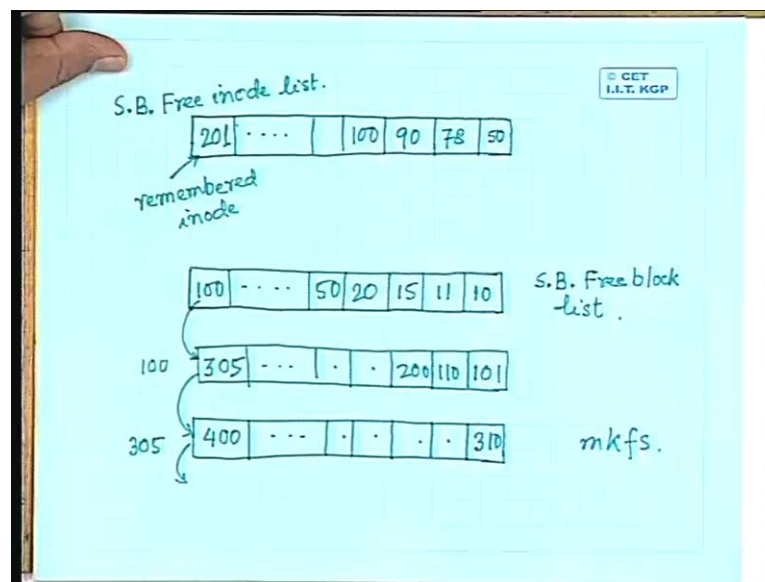 © CET
I.I.T. KGP
S.B. Free inode list.
201 .... 100 90 78 50
remembered
inode
100 .... 50 20 15 11 10
S.B. Free block
list.
100 305 ... . . 200 110 101
305 400 ... . . . . 310
mkfs.